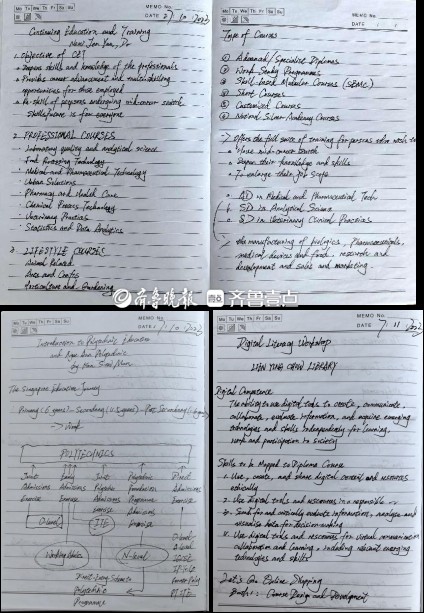 Mo Tu We Th Fr Sa Su
MEMO No.
DATE 27 / 10 / 2022
Continuing Education and Training
1. Objective of CET
• Deepens skills and knowledge of the professionals
• Provides career advancement and multi-skilling
opportunities for those employed
• Re-skill of persons undergoing mid-career switch
Skillsfuture is for everyone
2. PROFESSIONAL COURSES
- Laboratory quality and analytical science
- Food Processing Technology
- Medical and Pharmaceutical Technology
- Urban Solutions
- Pharmacy and Health Care
- Chemical Process Technology
- Veterinary Practices
- Statistics and Data Analytics
3. LIFESTYLE COURSES
- Animal Related
- Arts and Crafts
- Horticulture and Gardening
Mo Tu We Th Fr Sa Su
MEMO No.
DATE / /
Type of Courses
① Advanced/Specialist Diplomas
② Work-Study Programmes
③ Skill-based Modular Courses (SBMC)
④ Short Courses
⑤ Customised Courses
⑥ National Silver Academy Courses
> Offers the full suite of training for persons who wish to
• Have mid-career switch
• Deepen their knowledge and skills
• To enlarge their job scope
• AD in Medical and Pharmaceutical Tech
• SD in Analytical Science
• SD in Veterinary Clinical Practices
> the manufacturing of biologics, pharmaceuticals,
medical devices and food, research and
development and sales and marketing.
齐鲁晚报 齐鲁壹点
Mo Tu We Th Fr Sa Su
MEMO No.
DATE / 10 / 2022
Introduction to Polytechnic Education
and Ngee Ann Polytechnic
The Singapore Education Journey
Primary (6 years) → Secondary (4-5 years) → Post Secondary
→ Work
POLYTECHNICS
Joint Admissions Exercise
Early Admissions Exercise
Joint Polytechnic Admissions Exercise
Polytechnic Foundation Programme
Direct Admissions Exercise
O-level
ITE
Working Adults
N-level
Direct-Entry-Scheme to
Polytechnic
Programme
Mo Tu We Th Fr Sa Su
MEMO No.
DATE 7 / 11 / 2022
Digital Literacy Workshop
LIEN YING CHOW LIBRARY
Digital Competence
The ability to use digital tools to create, communicate,
collaborate, evaluate information, and acquire emerging
technologies and skills independently for learning,
work and participation to society
Skills to be Mapped to Diploma Course
I. Use, create, and share digital content and resources
ethically
II. Use Digital tools and resources in a responsible
III. Search for and critically evaluate information, analyse and
visualise data for decision-making
IV. Use digital tools and resources for virtual communication,
collaboration and learning, including relevant emerging
technologies and skills
Let's Go Online Shopping
Course Design and Development